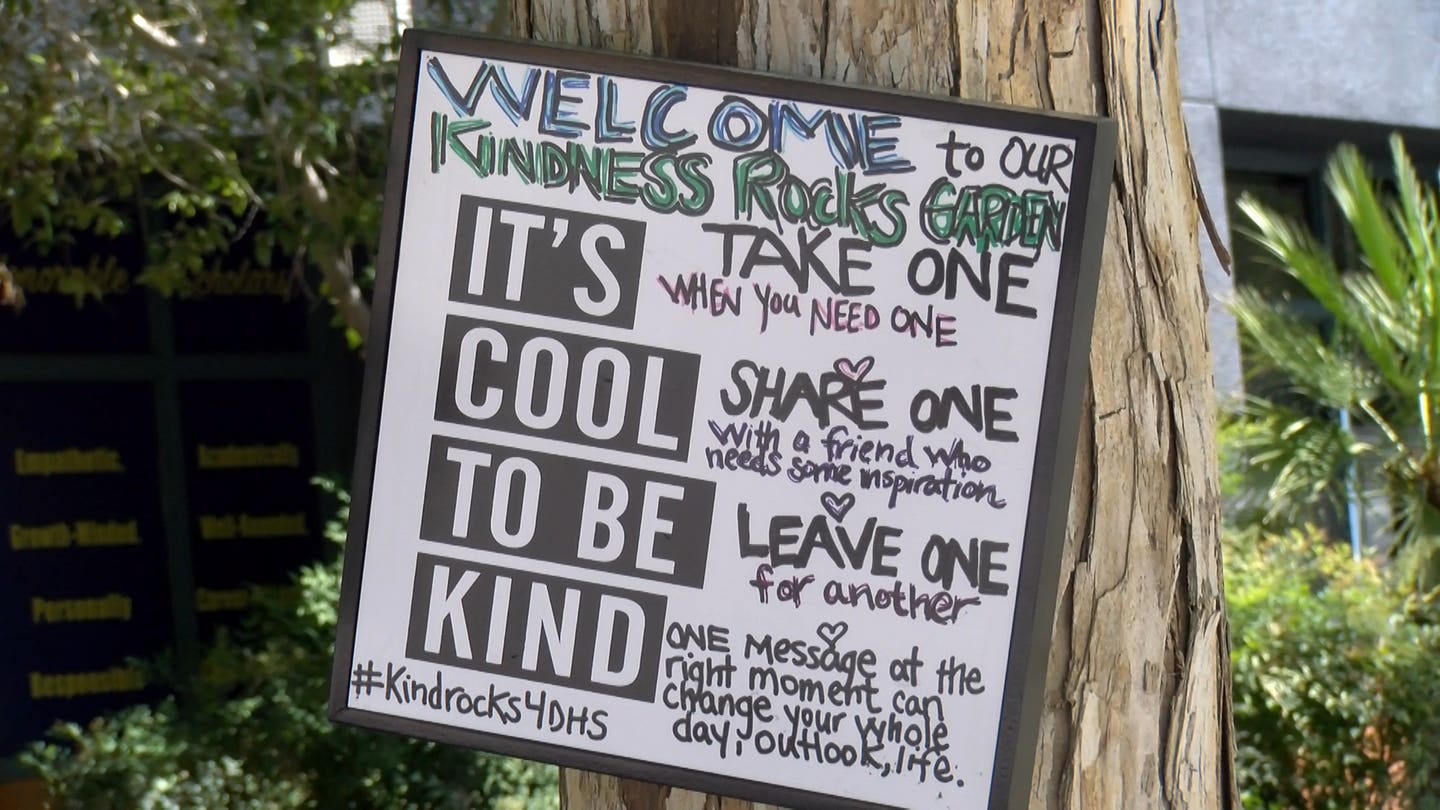 WELCOME to OUR
KINDNESS Rocks GARDEN
IT'S
COOL
TO BE
KIND
TAKE ONE
WHEN YOU NEED ONE
SHARE ONE
with a friend who
needs some inspiration
LEAVE ONE
for another
ONE Message at the
right moment can
change your whole
day, outlook, life.
#Kindrocks4DHS
Empathetic.
Growth-Mindset.
Personality
Responsible
Academically
Well-Rounded.